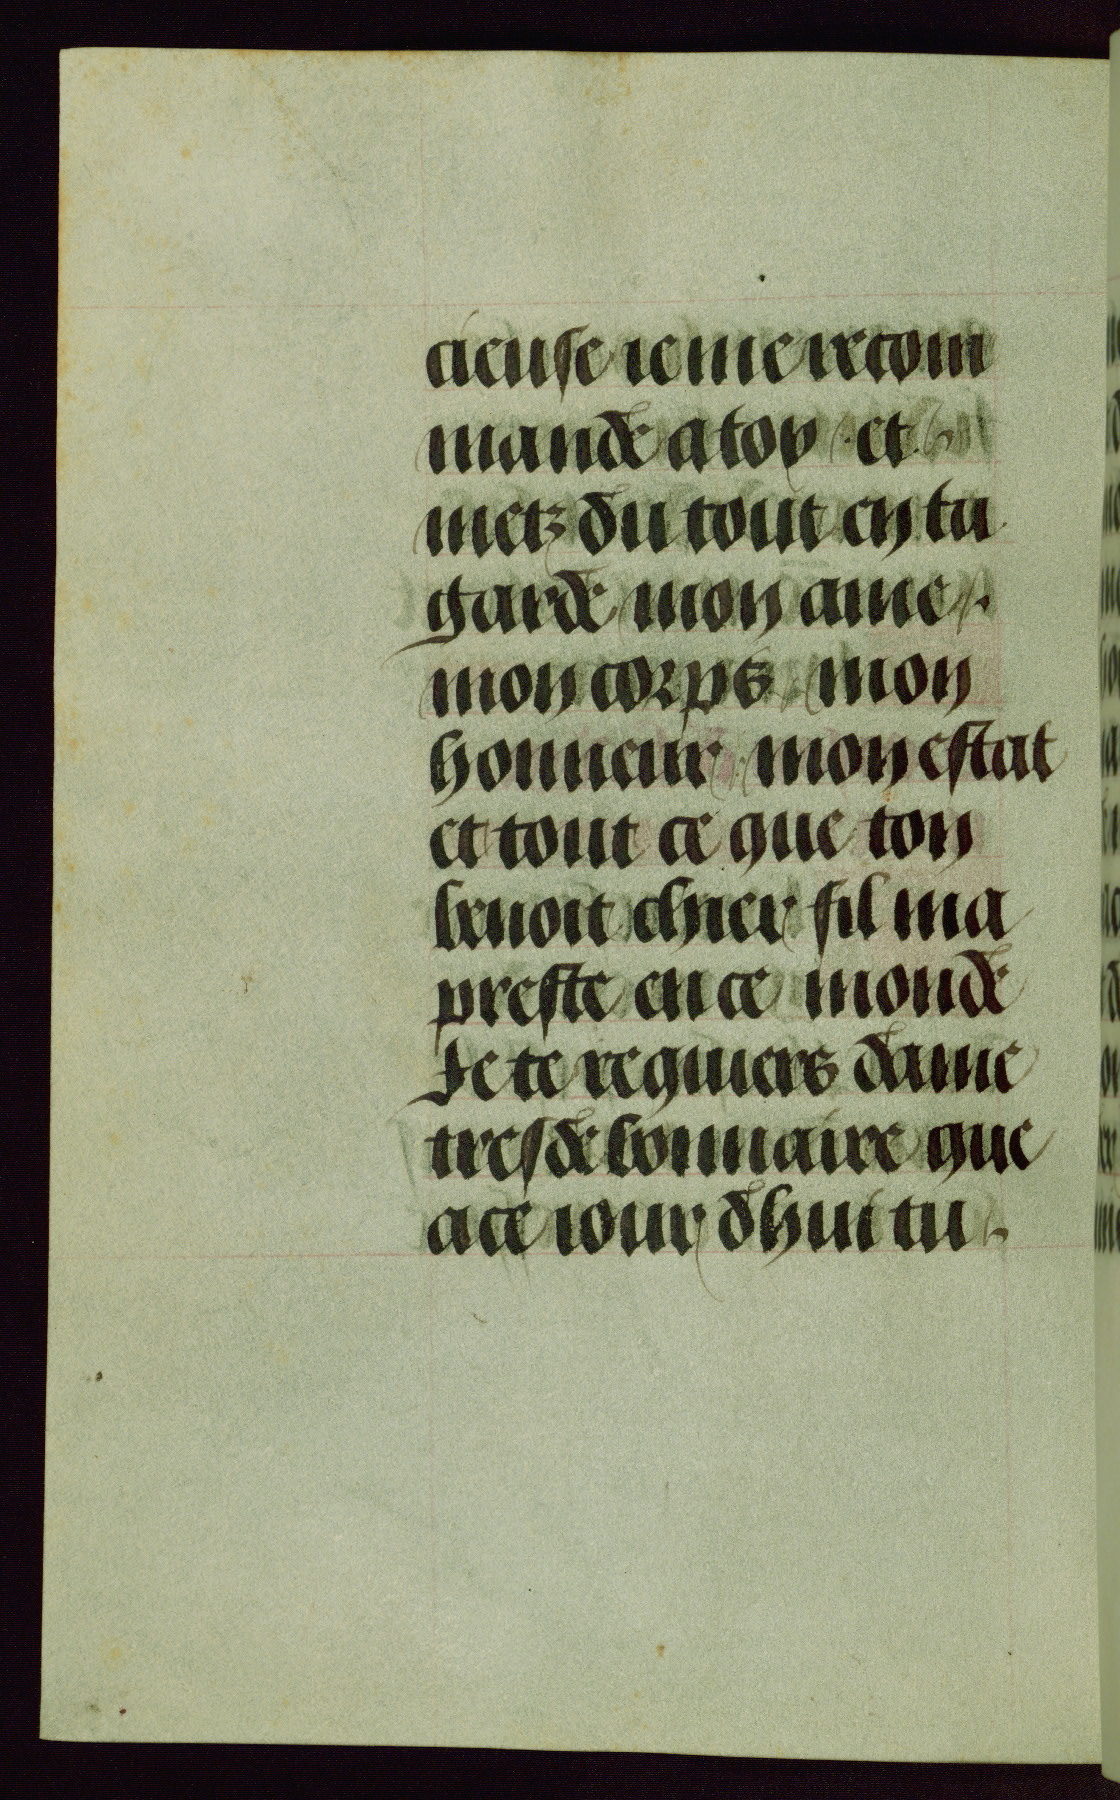 cieuse ie me recom
mande a toy · et
metz du tout en ta
garde mon ame ·
mon corps · mon
honneur · mon estat
et tout ce que ton
benoit chier fil ma
preste en ce monde
Je te requiers dame
tresdebonnaire que
a ce iour dhui tu